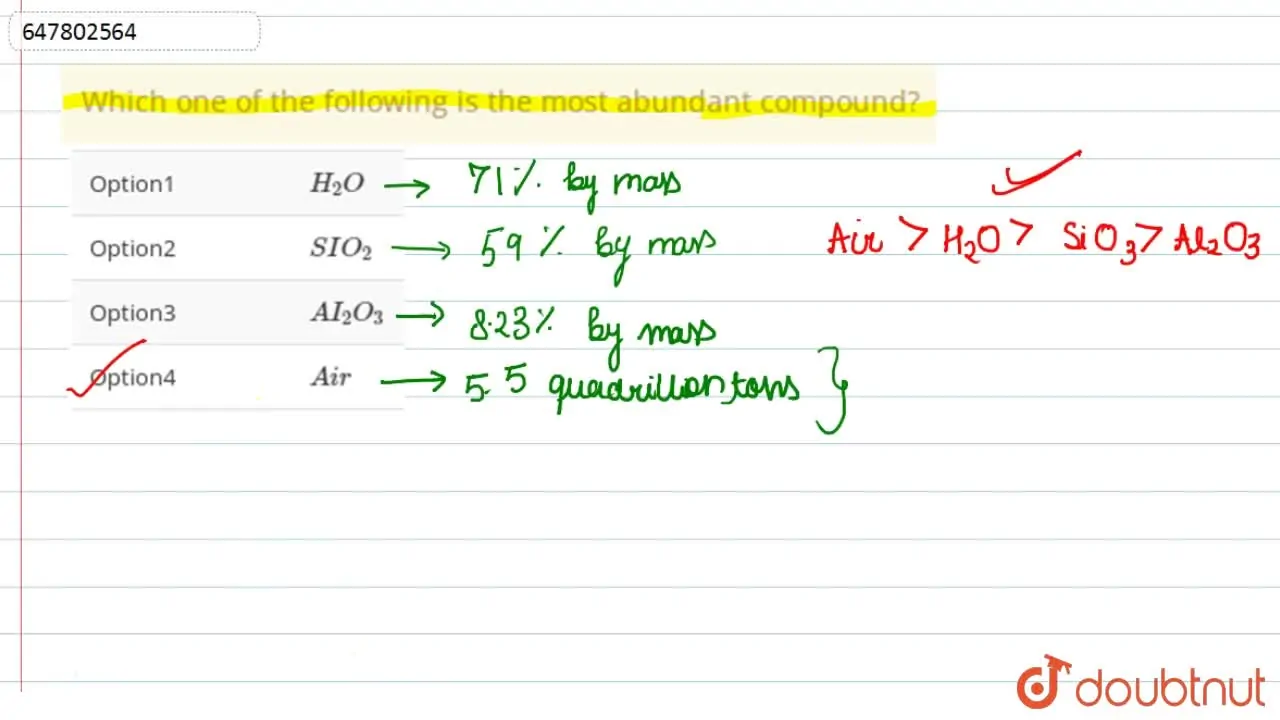 647802564
Which one of the following is the most abundant compound?
Option1 H₂O → 71% by mass
Option2 SIO₂ → 59% by mass
Air > H₂O > SiO₃ > Al₂O₃
Option3 AI₂O₃ → 8.23% by mass
Option4 Air → 5.5 quadrillion tons }
doubtnut